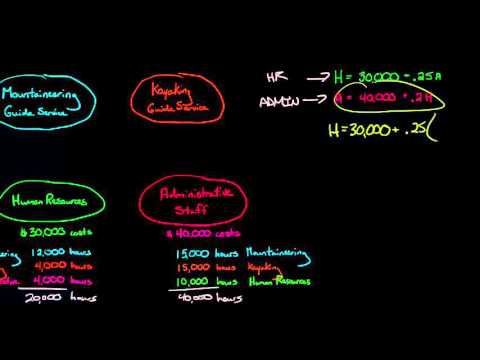 Mountaineering
Guide Service
Kayaking
Guide Service
HR → H = 30,000 + .25A
ADMIN → A = 40,000 + .2H
H = 30,000 + .25(
Human Resources
$30,000 costs
12,000 hours
4,000 hours
4,000 hours
20,000 hours
Administrative
Staff
$ 40,000 costs
15,000 hours Mountaineering
15,000 hours Kayaking
10,000 hours Human Resources
40,000 hours